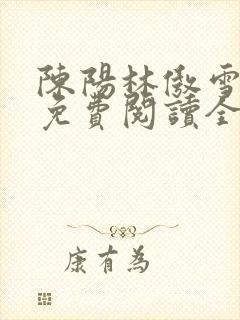 陳陽林傲雪
免費閱讀全
康有為